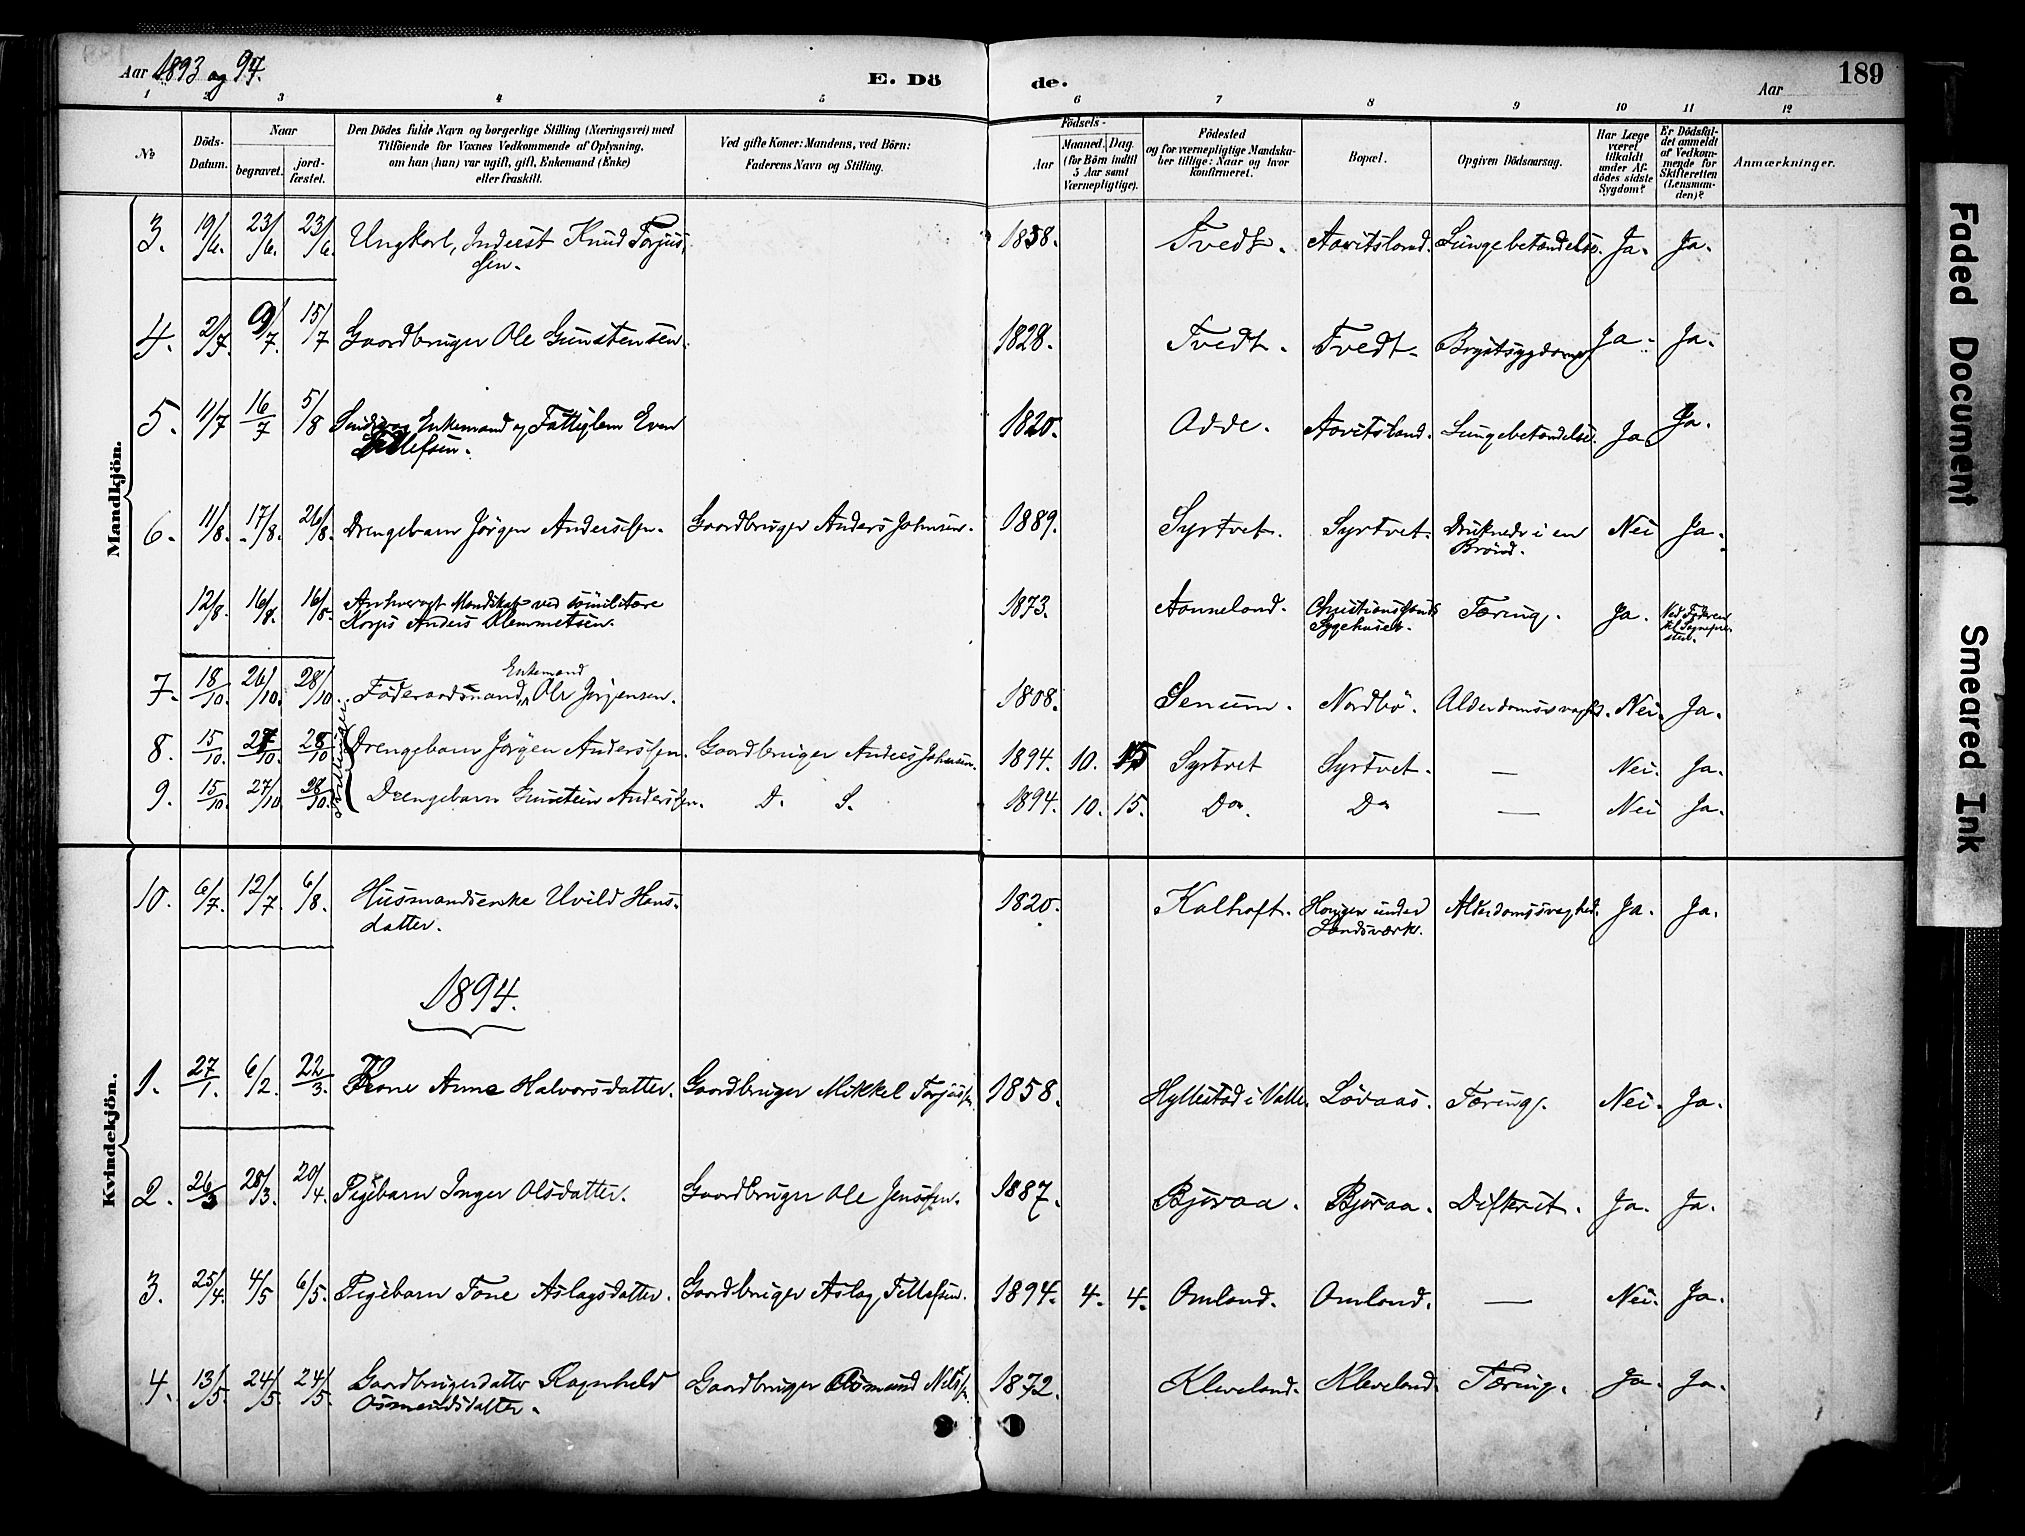 Aar 1893 og 94.
E. Dö
de.
Aar
189
1 2 3 4 5 6 7 8 9 10 11 12
№
Döds-Datum.
Naar
begravet.
jord-fæstet.
Den Dödes fulde Navn og borgerlige Stilling (Næringsvei) med
Tilföiende for Voxnes Vedkommende af Oplysning,
om han (hun) var ugift, gift, Enkemand (Enke)
eller fraskilt.
Ved gifte Koner: Mandens, ved Börn:
Faderens Navn og Stilling.
Födsels-
Aar
Maaned. Dag.
(for Börn indtil
5 Aar samt
Værnepligtige).
Födested
og for værnepligtige Mandska-
ber tillige: Naar og hvor
konfirmeret.
Bopæl.
Opgiven Dödsaarsag.
Har Læge
været
tilkaldt
under Af-
dödes sidste
Sygdom?
Er Dödsfal-
det anmeldt
af Vedkom-
mende for
Skifteretten
(Lensman-
den)?
Anmærkninger.
Mandkjön.
3. 19/6. 23/6. 23/6. Ungkarl, Inderst Knud Torjus- 1838. Tvedt. Aavitsland. Lungebetændelse. Ja. Ja.
sen.
4. 2/7. 9/7. 15/7 Gaardbruger Ole Gunstensen. 1828. Tvedt. Tvedt. Brystsygdom Ja. Ja.
5. 11/7 16/7 5/8 Enkemand og Fattiglem Even 1820. Odde. Aavitsland. Lungebetændelse. Ja Ja.
Tellefsen.
6. 11/8. 17/8. 26/8. Drengebarn Jörgen Anderssen. Gaardbruger Anders Johnsen. 1889. Syrtvet. Syrtvet. Druknede i en Nei Ja.
Brönd.
12/8. 16/8. 16/8. Mandskab ved militære 1873. Aanneland. Christianssands Tæring. Ja.
Korps Anders Klemmetsen. Sygehuset.
7. 18/10. 26/10. 28/10. Föderaadsmand, Enkemand Ole Jörgensen. 1808. Senum. Nordbö. Alderdomssvagh. Nei. Ja.
8. 15/10. 27/10. 28/10 Drengebarn Jörgen Anderssen. Gaardbruger Anders Johnsen. 1894. 10. 15 Syrtvet Syrtvet. — Nei. Ja.
9. 15/10. 27/10 28/10. Drengebarn Gunstein Anderssen. D. S. 1894. 10. 15. Do. Do — Nei Ja.
Kvindekjön.
10. 6/7. 12/7. 6/8. Husmandsenke Uvild Hans- 1820. Kaltveft. under Alderdomssvaghed. Ja. Ja.
datter. Landsværk.
1894.
1. 27/1. 6/2. 22/3. Kone Anne Halvorsdatter. Gaardbruger Mikkel Torjussen 1858. Hyllestad i Valle. Løvaas. Tæring. Nei. Ja.
2. 26/3 28/3. 20/4. Pigebarn Inger Olsdatter. Gaardbruger Ole Jenssen. 1887. Bjøraa. Bjøraa. Difterit. Ja. Ja.
3. 25/4. 4/5 6/5. Pigebarn Tone Aslagsdatter. Gaardbruger Aslag Tellefsen. 1894. 4. 4. Omland. Omland. — Nei. Ja.
4. 13/5. 24/5. 24/5. Gaardbrugerdatter Ragnhild Gaardbruger Osmund Nilss. 1872. Kleveland. Kleveland. Tæring. Ja. Ja.
Osmundsdatter.
Faded Document
Smeared Ink